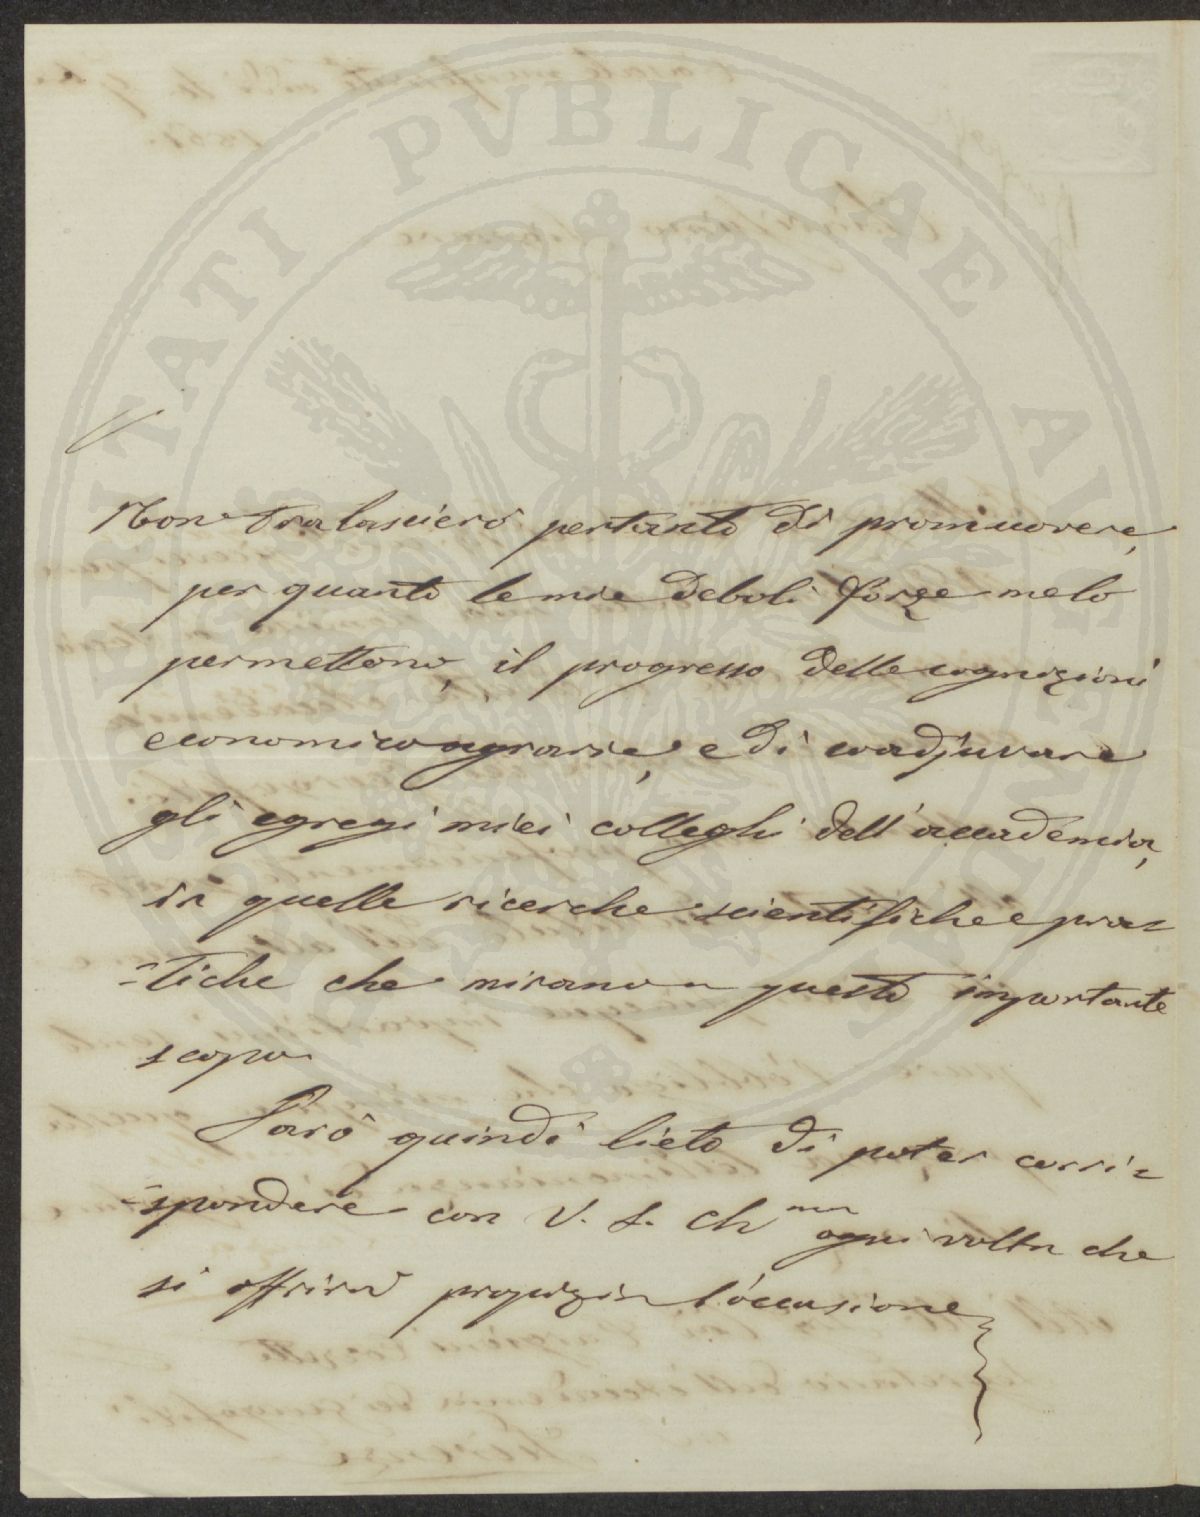 PROSPERITATI PVBLICAE AVGENDAE
Non tralascierò pertanto di promuovere,
per quanto le mie deboli forze melo
permettono, il progresso delle cognizioni
economico agrarie, e di coadjuvare
gli egregi miei colleghi dell'accademia,
in quelle ricerche scientifiche e pra=
=tiche che mirano a questo importante
scopo.
Sarò quindi lieto di poter corri=
=spondere con V. S. Ch.ma ogni volta che
si offrirà propizia l'occasione